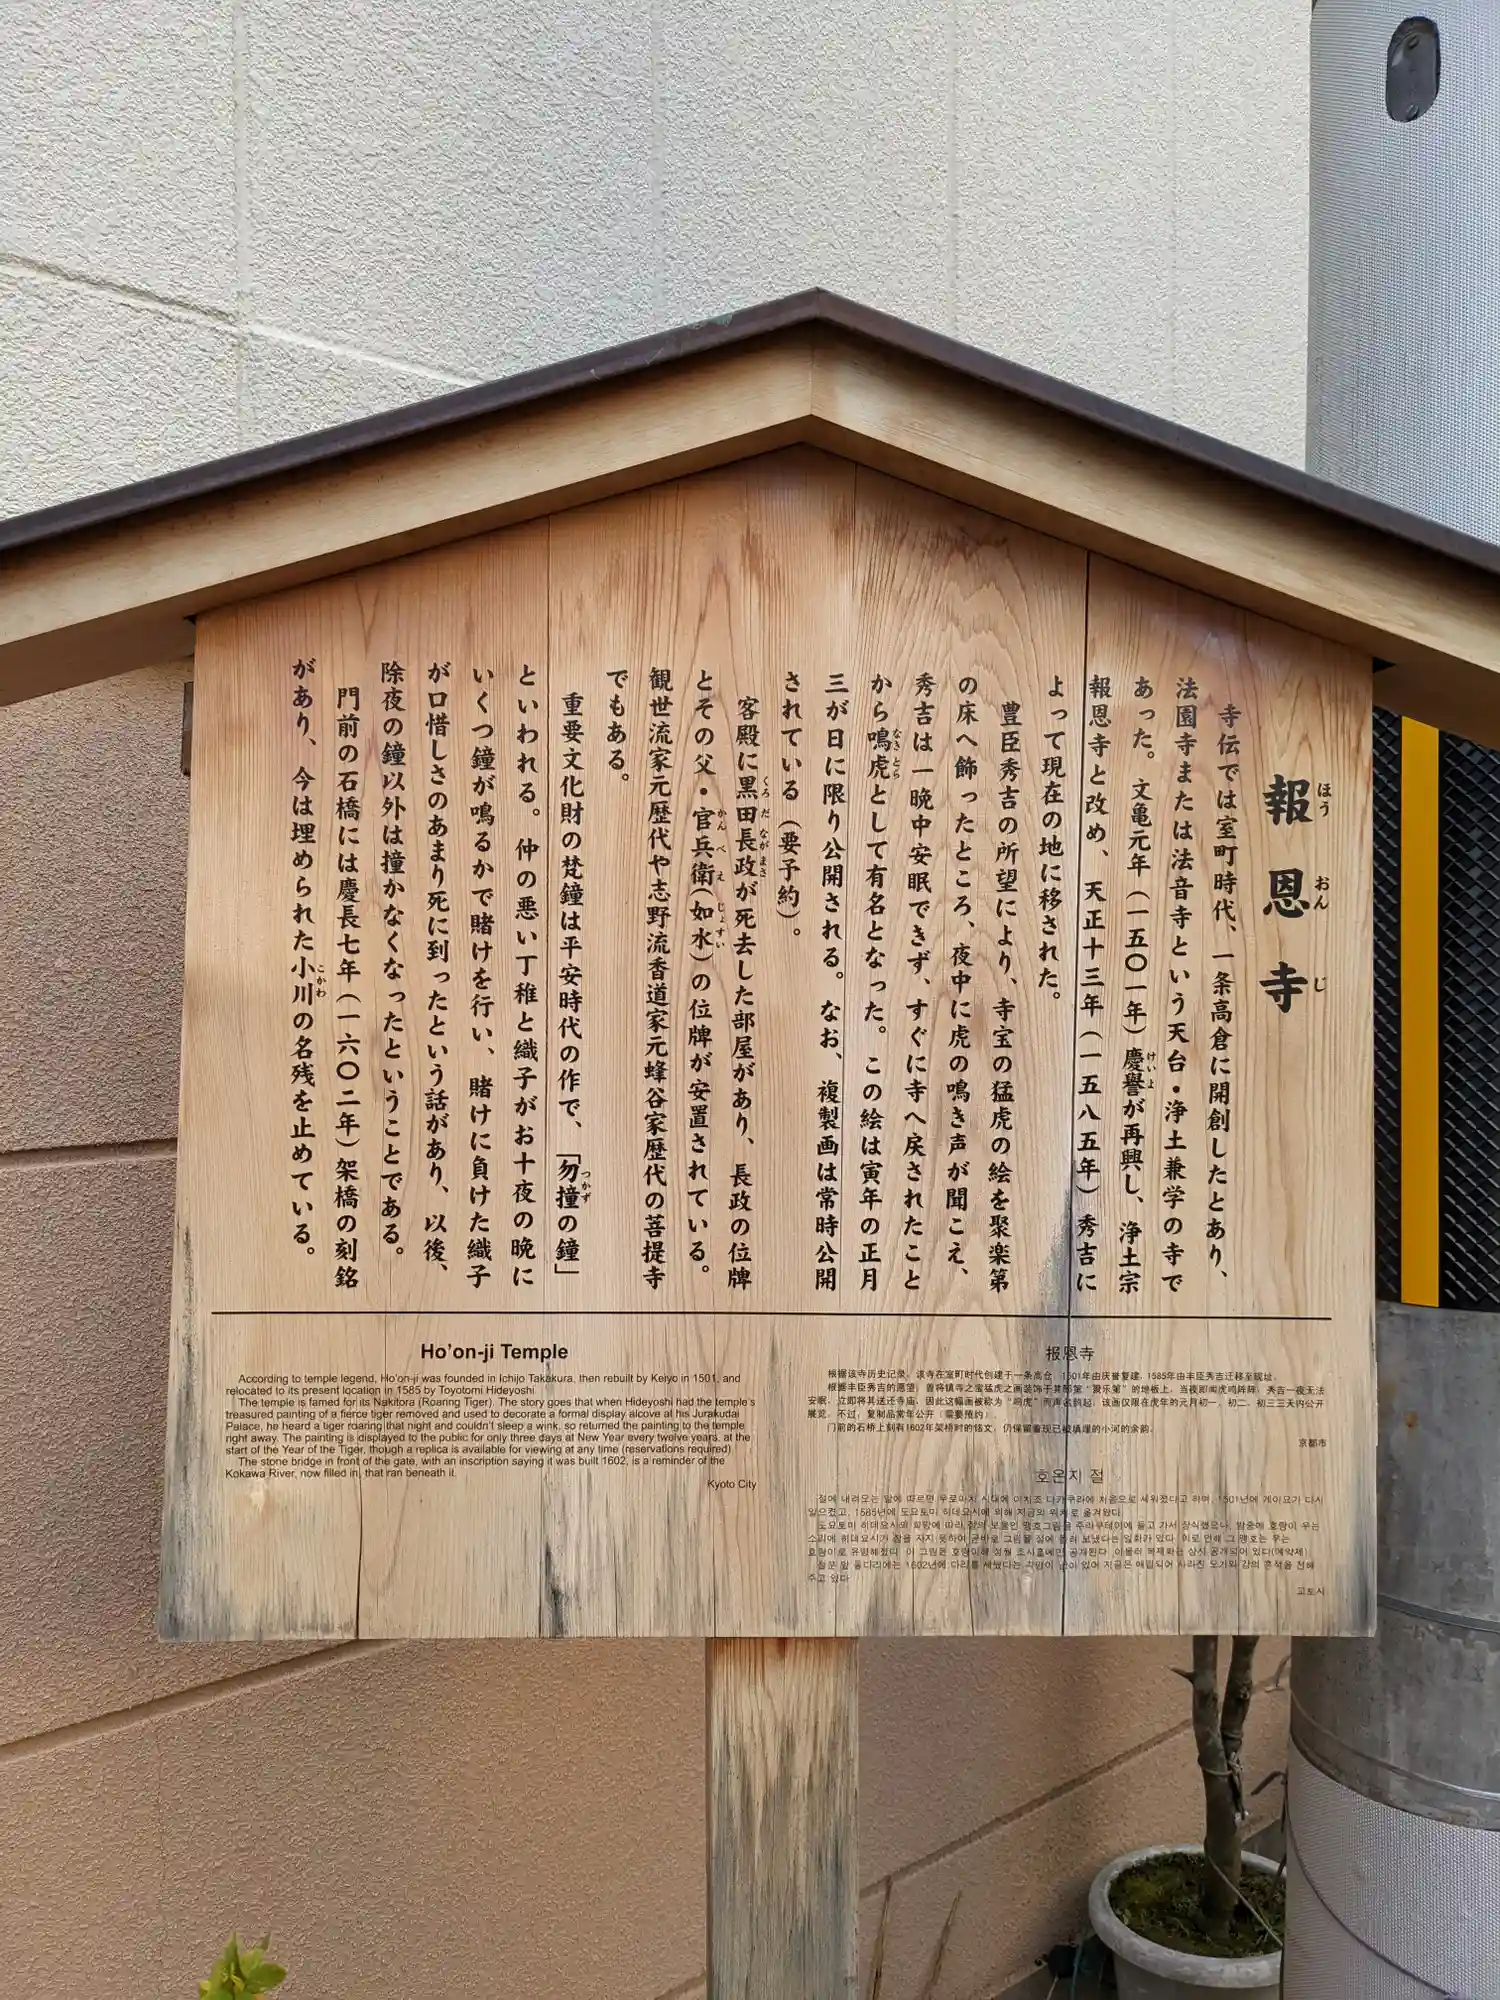 報恩寺
ほう おん じ
寺伝では室町時代、一条高倉に開創したとあり、
法園寺または法音寺という天台・浄土兼学の寺で
あった。文亀元年(一五〇一年)慶誉が再興し、浄土宗
けいよ
報恩寺と改め、天正十三年(一五八五年)秀吉に
よって現在の地に移された。
豊臣秀吉の所望により、寺宝の猛虎の絵を聚楽第
の床へ飾ったところ、夜中に虎の鳴き声が聞こえ、
秀吉は一晩中安眠できず、すぐに寺へ戻されたこと
から鳴虎として有名となった。この絵は寅年の正月
なき とら
三が日に限り公開される。なお、複製画は常時公開
されている(要予約)。
客殿に黒田長政が死去した部屋があり、長政の位牌
くろ だ ながまさ
とその父・官兵衛(如水)の位牌が安置されている。
かん べ え じょすい
観世流家元歴代や志野流香道家元蜂谷家歴代の菩提寺
でもある。
重要文化財の梵鐘は平安時代の作で、「勿撞の鐘」
つかず
といわれる。仲の悪い丁稚と織子がお十夜の晩に
いくつ鐘が鳴るかで賭けを行い、賭けに負けた織子
が口惜しさのあまり死に到ったという話があり、以後、
除夜の鐘以外は撞かなくなったということである。
門前の石橋には慶長七年(一六〇二年)架橋の刻銘
があり、今は埋められた小川の名残を止めている。
こかわ
Ho'on-ji Temple
According to temple legend, Ho'on-ji was founded in Ichijo Takakura, then rebuilt by Keiyo in 1501, and
relocated to its present location in 1585 by Toyotomi Hideyoshi.
The temple is famed for its Nakitora (Roaring Tiger). The story goes that when Hideyoshi had the temple's
treasured painting of a fierce tiger removed and used to decorate a formal display alcove at his Jurakudai
Palace, he heard a tiger roaring that night and couldn't sleep a wink, so returned the painting to the temple
right away. The painting is displayed to the public for only three days at New Year every twelve years, at the
start of the Year of the Tiger, though a replica is available for viewing at any time (reservations required)
The stone bridge in front of the gate, with an inscription saying it was built 1602, is a reminder of the
Kokawa River, now filled in, that ran beneath it.
Kyoto City
报恩寺
根据该寺历史记录，该寺在室町时代创建于一条高仓，1501年由庆誉复建，1585年由丰臣秀吉迁移至现址。
根据丰臣秀吉的愿望，曾将镇寺之宝猛虎之画装饰于其邸第"聚乐第"的地板上，当夜即闻虎鸣阵阵，秀吉一夜无法
安眠，立即将其送还寺庙，因此这幅画被称为"鸣虎"而声名鹊起。该画仅限在虎年的元月初一、初二、初三三天内公开
展览。不过，复制品常年公开（需要预约）。
门前的石桥上刻有1602年架桥时的铭文，仍保留着现已被填埋的小河的余韵。
京都市
호온지 절
절에 내려오는 말에 따르면 무로마치 시대에 이치조 다카쿠라에 처음으로 세워졌다고 하며, 1501년에 게이요가 다시
일으켰고, 1585년에 도요토미 히데요시에 의해 지금의 위치로 옮겨왔다.
도요토미 히데요시의 희망에 따라 절의 보물인 맹호그림을 주라쿠테이에 들고 가서 장식했으나, 밤중에 호랑이 우는
소리에 히데요시가 잠을 자지 못하여 곧바로 그림을 절에 돌려 보냈다는 일화가 있다. 이로 인해 그 맹호는 우는
호랑이로 유명해졌다. 이 그림은 호랑이해 정월 초사흘에만 공개된다. 아울러 복제화는 상시 공개되어 있다(예약제)
절문 앞 돌다리에는 1602년에 다리를 세웠다는 각명이 남아 있어 지금은 매립되어 사라진 오가와 강의 흔적을 전해
주고 있다.
교토시